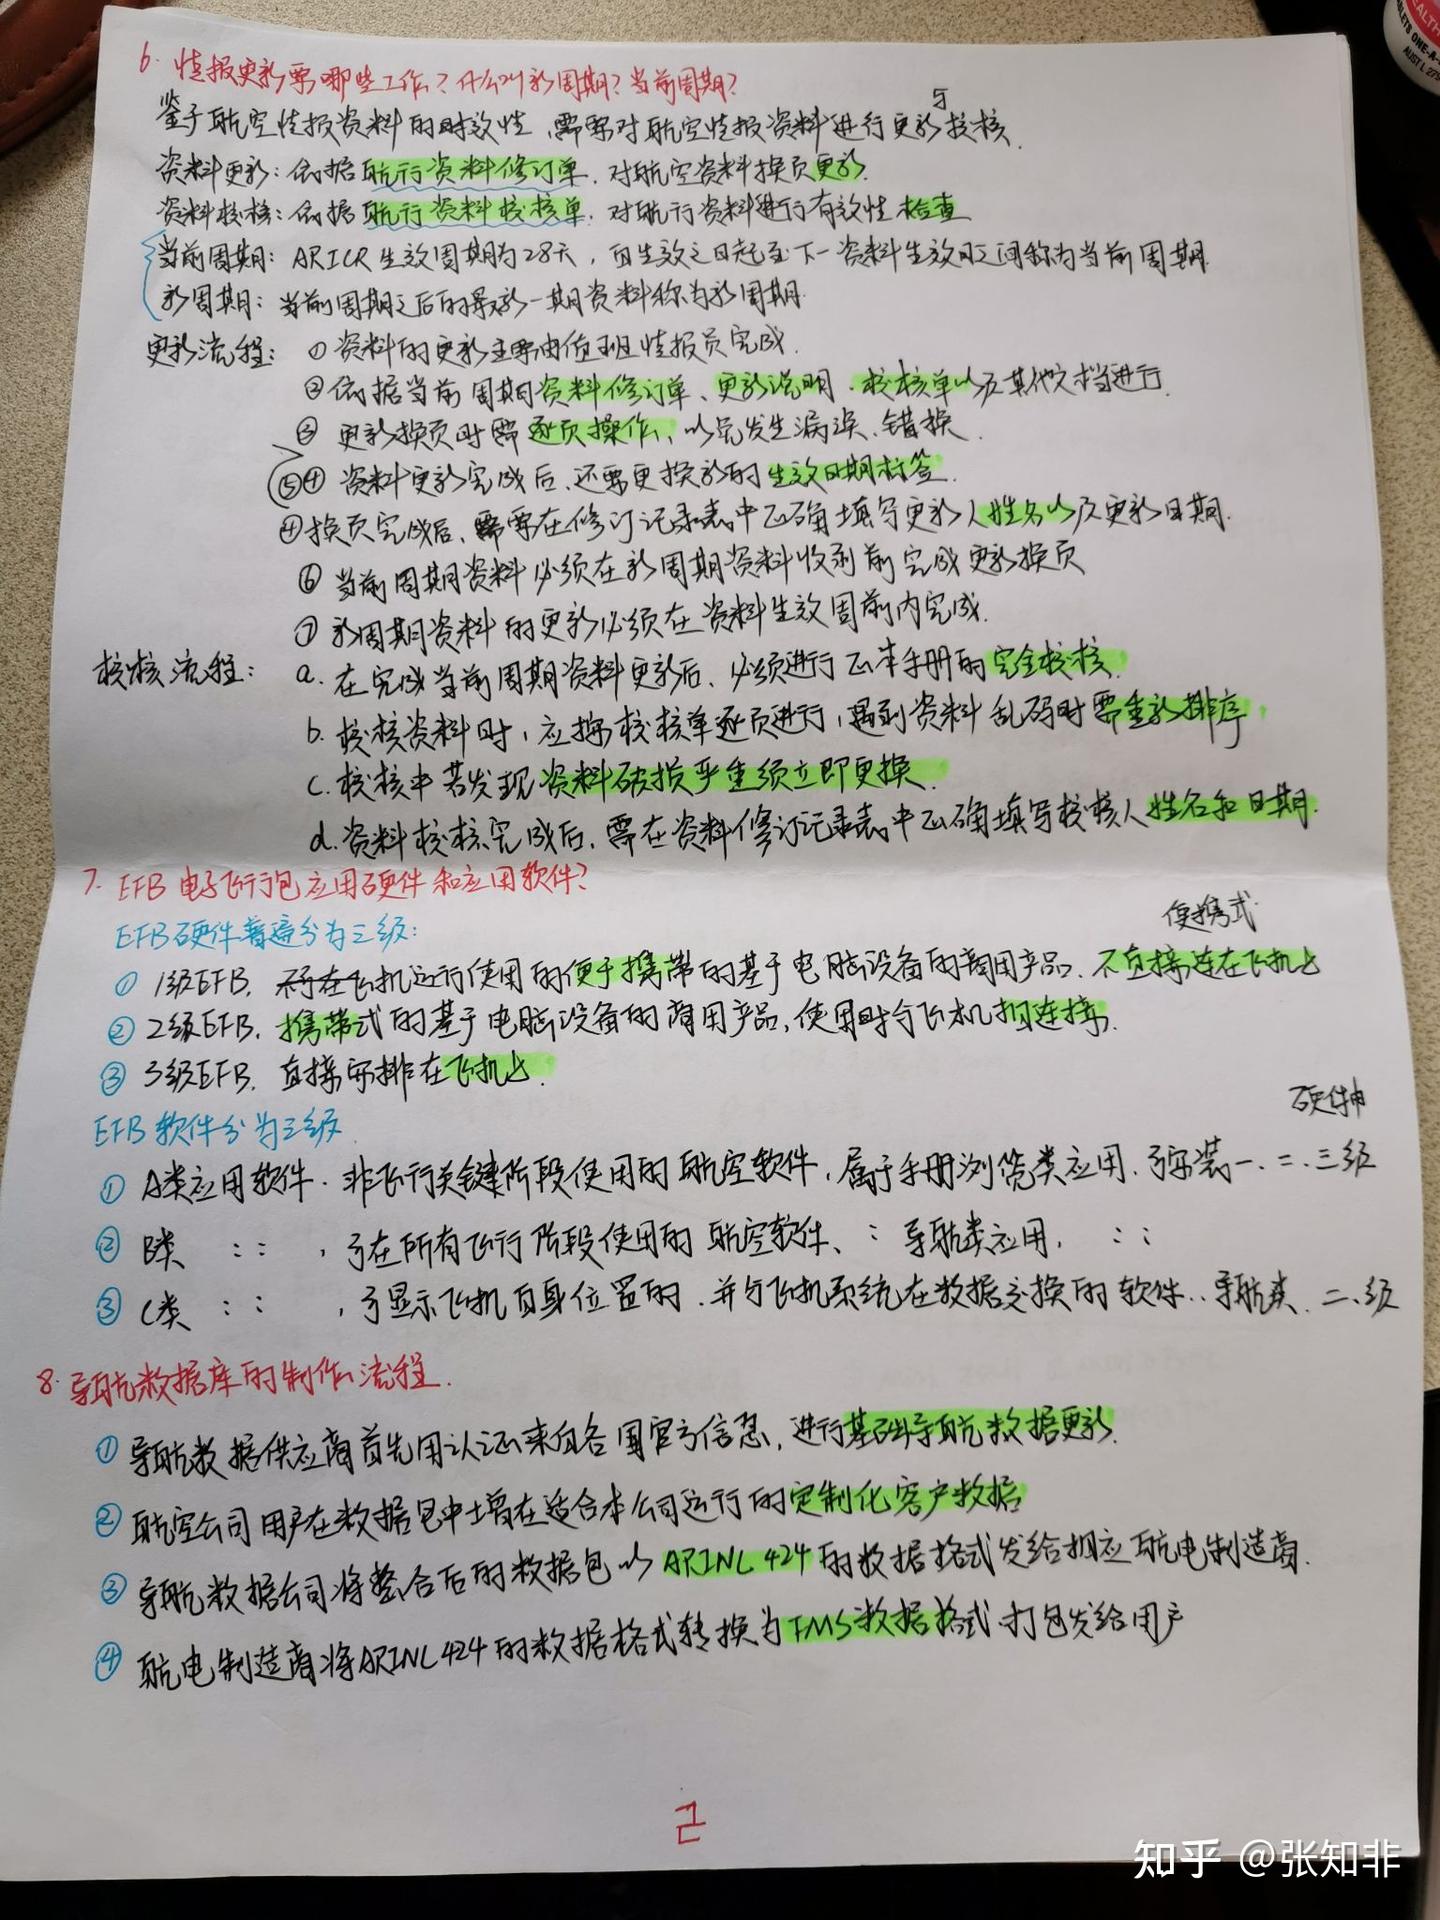 6. 情报更新需哪些工作？什么叫新周期？当前周期？
鉴于航空情报资料的时效性，需要对航空情报资料进行更新与校核.
资料更新：依据航行资料修订单，对航空资料换页更新.
资料校核：依据航行资料校核单，对航行资料进行有效性检查
当前周期：ARICR生效周期为28天，自生效之日起至下一资料生效日之间称为当前周期.
新周期：当前周期之后的最新一期资料称为新周期.
更新流程：① 资料的更新主要由值班情报员完成.
② 依据当前周期资料修订单、更新说明、校核单以及其他文档进行.
③ 更新换页时需逐页操作，以免发生漏误、错换.
⑤④ 资料更新完成后、还要更换新的生效日期标签.
④换页完成后、需要在修订记录表中正确填写更新人姓名以及更新日期.
⑥ 当前周期资料必须在新周期资料收到前完成更新换页
⑦ 新周期资料的更新必须在资料生效周前内完成.
校核流程：a. 在完成当前周期资料更新后、必须进行正本手册的完全校核.
b. 校核资料时，应按校核单逐页进行，遇到资料乱码时需重新排序.
c. 校核中若发现资料破损严重须立即更换.
d. 资料校核完成后，需在资料修订记录表中正确填写校核人姓名和日期.
7. EFB 电子飞行包应用硬件和应用软件？
EFB硬件普遍分为三级：
便携式
① 1级EFB，可在飞机运行使用的便于携带的基于电脑设备的商用产品、不直接连在飞机上
② 2级EFB，携带式的基于电脑设备的商用产品，使用时与飞机相连接.
③ 3级EFB，直接安排在飞机上.
EFB软件分为三级
硬件中
① A类应用软件、非飞行关键阶段使用的航空软件，属于手册浏览类应用、可安装一、二、三级
② B类 ：： ，可在所有飞行阶段使用的航空软件、： 导航类应用， ：：
③ C类 ：： ，可显示飞机自身位置的、并与飞机系统在数据交换的软件..导航类. 二、级
8. 导航数据库的制作流程.
① 导航数据供应商首先用认证来自各国官方信息，进行基础导航数据更新.
② 航空公司用户在数据包中增在适合本公司运行的定制化客户数据
③ 导航数据公司将整合后的数据包以ARINC 424的数据格式发给相应航电制造商.
④ 航电制造商将ARINC 424的数据格式转换为FMS数据格式、打包发给用户
2
知乎 @张知非